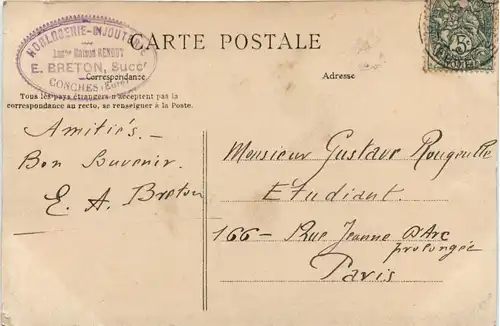 HORLOGERIE-BIJOUTERIE
Anc.ne Maison RENOUT
E. BRETON, Succr
CONCHES (Eure)
CARTE POSTALE
Correspondance
Adresse
Tous les pays étrangers n'acceptent pas la
correspondance au recto, se renseigner à la Poste.
Amitiés. —
Bon Souvenir.
E. A. Breton
Monsieur Gustave
Etudiant.
166 — Rue Jeanne D'Arc
prolongée
Paris
5c